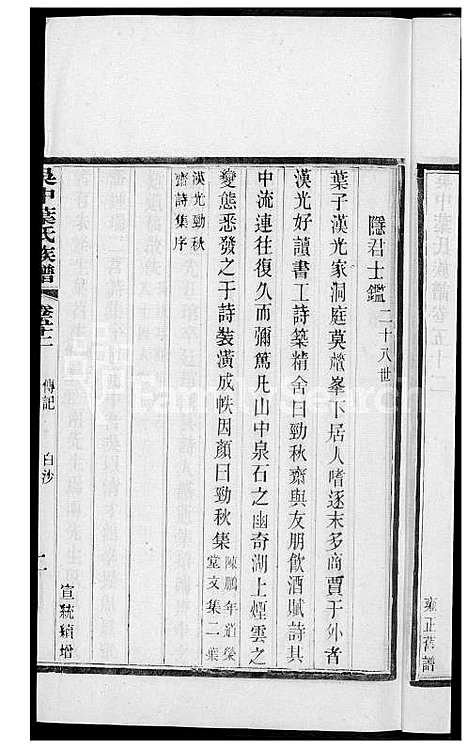 吳中葉氏族譜卷五十二
雍正舊譜
隱君士鑑 二十八世
葉子漢光家洞庭莫釐峯下居人嗜逐末多商賈于外者
漢光好讀書工詩築精舍曰勁秋齋與友朋飲酒賦詩其
中流連往復久而彌篤凡山中泉石之幽奇湖上煙雲之
變態悉發之于詩裝潢成帙因顏曰勁秋集 陳鵬年道榮
堂文集二葉
漢光勁秋
齋詩集序
吳中葉氏族譜 卷五十二 傳記 白沙 二 宣統續增